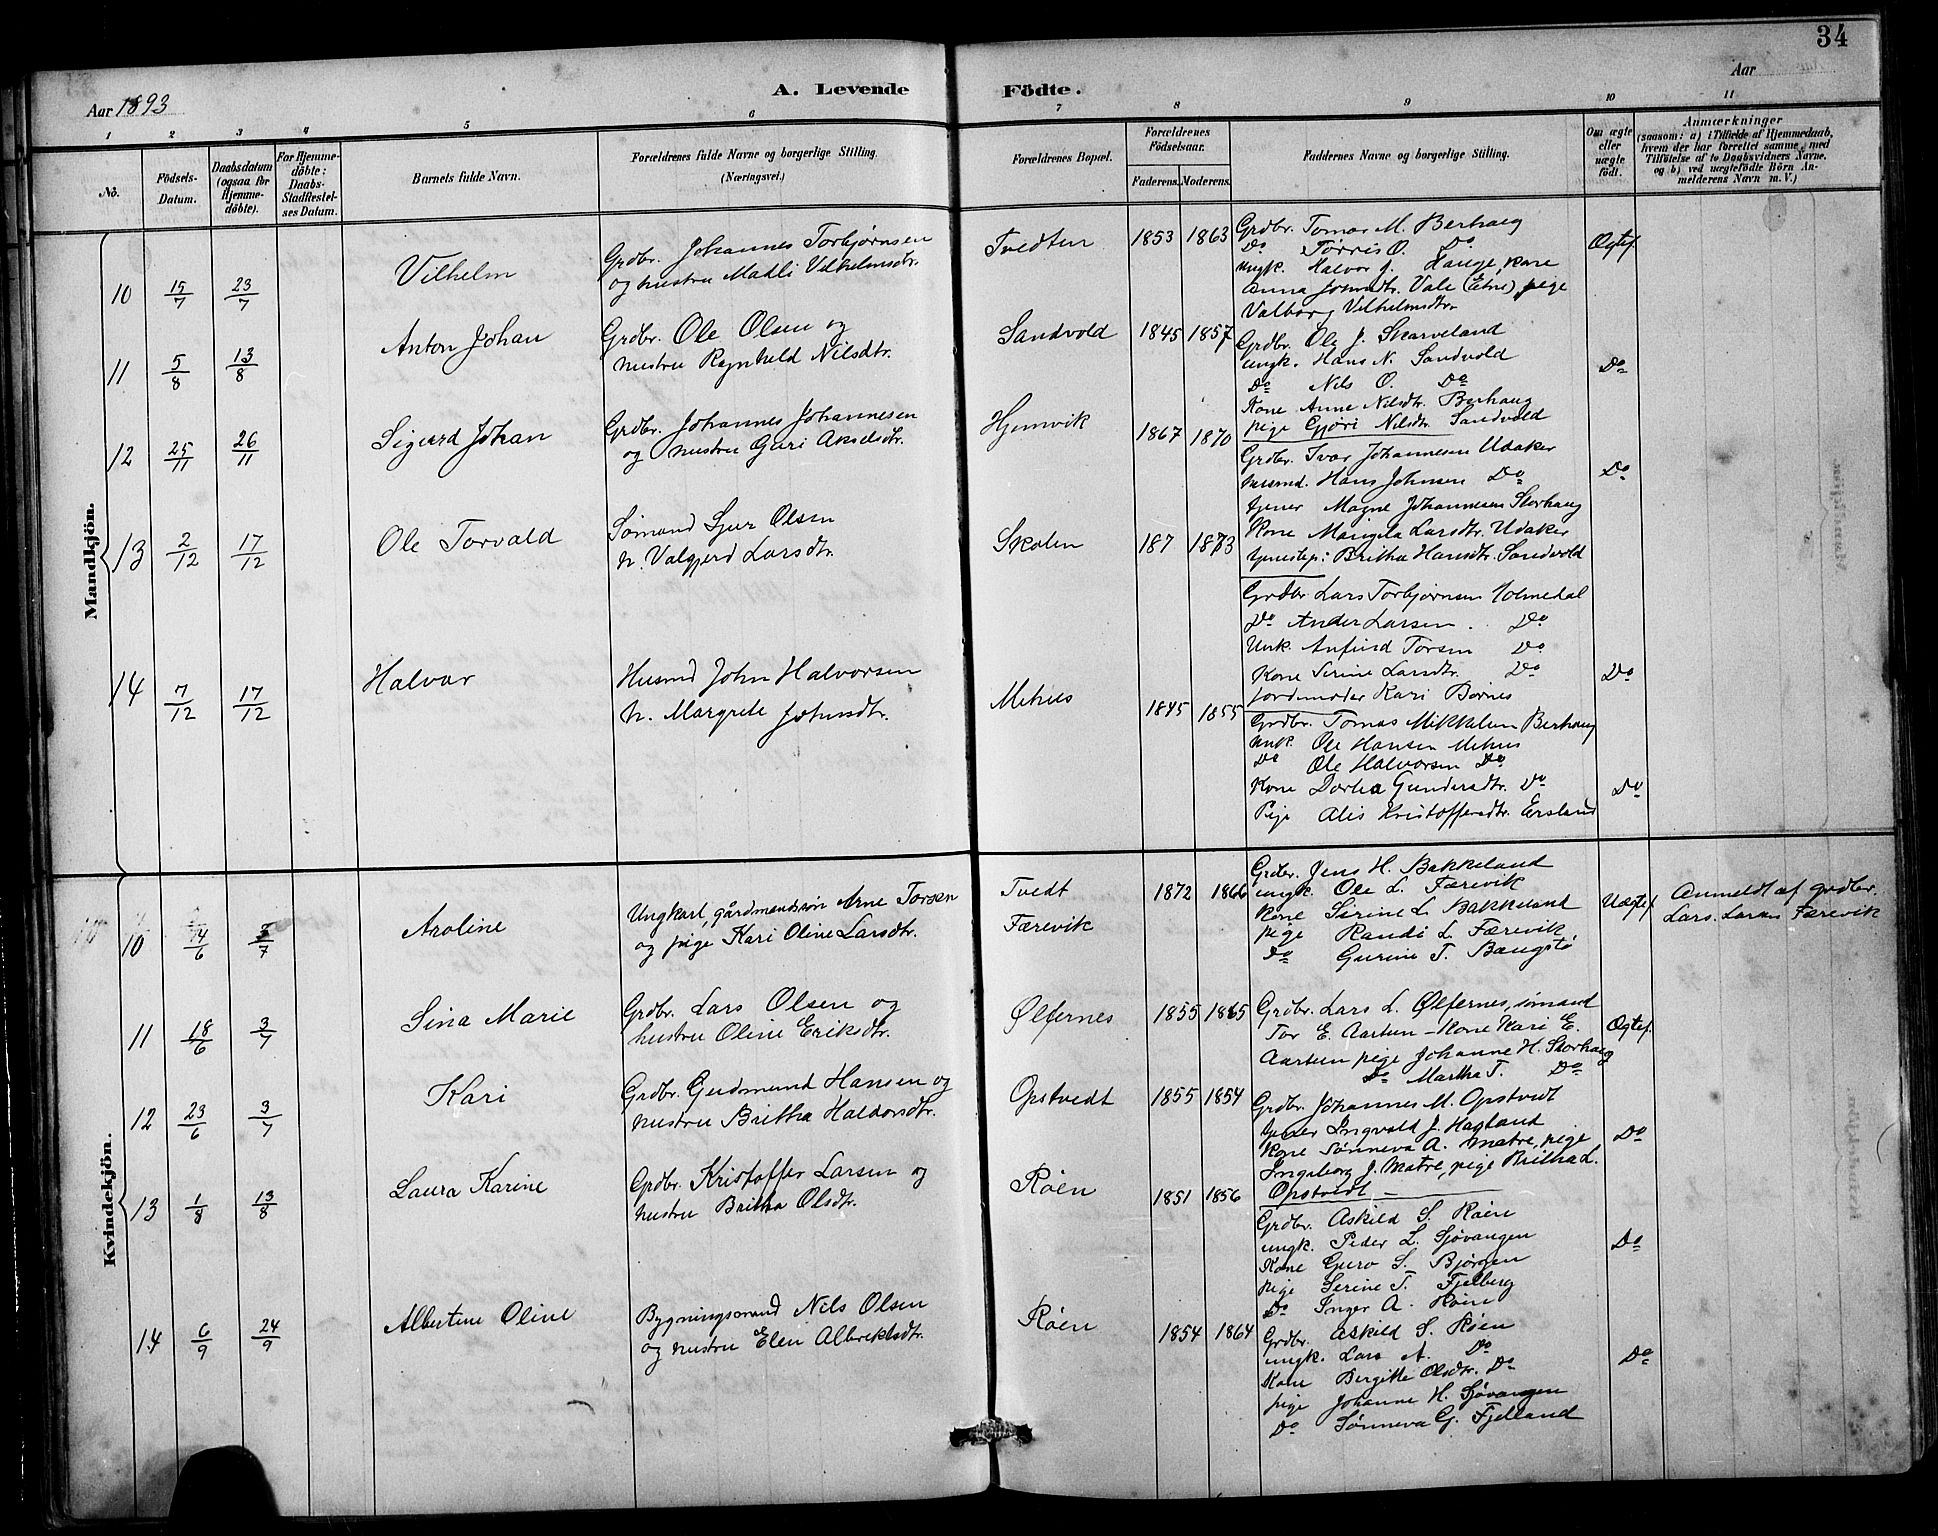 34
Aar 1893
A. Levende Födte.
Aar
1 2 3 4 5 6 7 8 9 10 11
No.
Födsels-Datum.
Daabsdatum (ogsaa for Hjemme-döbte).
For Hjemme-döbte: Daabs-Stadfestel-ses Datum.
Barnets fulde Navn.
Forældrenes fulde Navne og borgerlige Stilling. (Næringsvei.)
Forældrenes Bopæl.
Forældrenes Födselsaar.
Faderens. Moderens.
Faddernes Navne og borgerlige Stilling.
Om ægte eller uægte födt.
Anmærkninger
(saasom: a) i Tilfælde af Hjemmedaab, hvem der har forrettet samme, med Tilföielse af to Daabsvidners Navne, og b) ved uægtefödte Börn An-melderens Navn m. V.)
Mandkjön.
10 15/7 23/7 Vilhelm
Grdbr. Johannes Torbjørnsen
og hustru Madli Vilhelmsdtr.
Tvedten 1853 1863
Grdbr. Tomas M. Berhaug
Do Tørris O. Do
ungk. Halvor J. Hauge, kone
Anna Johnsdtr. Vale (Etne), pige
Valborg Vilhelmsdtr.
Ægtef.
11 5/8 13/8 Anton Johan
Grdbr. Ole Olsen og
hustru Ragnhild Nilsdtr.
Sandvold 1845 1857
Grdbr. Ole J. Skarveland
ungk. Hans N. Sandvold
Do Nils O. Do
Kone Anne Nilsdtr. Berhaug
pige Gjøri Nilsdtr. Sandvold
Do
12 25/11 26/11 Sigurd Johan
Grdbr. Johannes Johannesen
og hustru Guri Akselsdtr.
Hjemvik 1867 1870
Grdbr. Ivar Johannesen Udaker
husmd. Hans Johnsen Do
tjener Magne Johannesen Storhaug
Kone Mangela Larsdtr. Udaker
tjenestep: Britha Hansdtr. Sandvold
Do
13 2/12 17/12 Ole Torvald
Sømand Sjur Olsen
h. Valgjerd Larsdtr.
Skolen 187 1873
Grdbr Lars Torbjørnsen Holmedal
Do Ander Larsen. Do
Unk. Anfind Torsen Do
Kone Serine Larsdtr. Do
Jordemoder Kari Børnes
Do
14 7/12 17/12 Halvar
Husmd John Halvorsen
h. Margrete Johnsdtr.
Mehus 1845 1855
Grdbr. Tomas Mikkelsen Berhaug
Unk. Ole Hansen Mehus
Do Ole Halvorsen Do
Kone Dorthea Gundersdtr. Do
Pige Alis Kristoffersdtr. Ersland
Do
Kvindekjön.
10 14/6 3/7 Aroline
Ungkarl, gårdmandssøn Arne Torsen
og pige Kari Oline Larsdtr.
Tvedt
Færevik
1872 1866
Grdbr. Jens H. Bakkeland
ungk. Ole L. Færevik
Kone Serine L. Bakkeland
pige Randi L. Færevik
Do Gurine T. Baugstø
Uægtef.
Anmeldt af grdbr.
Lars Larsen Færevik
11 18/6 3/7 Sina Marie
Grdbr. Lars Olsen og
hustru Oline Eriksdtr.
Ølfernes 1855 1865
Grdbr. Lars L. Ølfernes, sømand
Tor E. Aarteen – Kone Kari E.
Aarteen pige Johanne H. Storhaug
Do Martha T. Do
Ægtef.
12 23/6 3/7 Kari
Grdbr. Gudmund Hansen og
hustru Britha Haldorsdtr.
Opstvedt 1855 1854
Grdbr. Johannes M. Opstvedt
tjener Ingvald J. Hagland
Kone Sønneva A. Matre, pige
Ingeborg J. Matre, pige Britha L.
Opstvedt –
Do
13 1/8 13/8 Laura Karine
Grdbr. Kristoffer Larsen og
hustru Britha Olsdtr.
Røen 1851 1856
Grdbr. Askild S. Røen
ungk. Peder L. Sjøvangen
Kone Guro S. Bjørgen
pige Serine T. Fjelberg
Do Inger A. Røen
Do
14 6/9 24/9 Albertine Oline
Bygningsmand Nils Olsen
og hustru Elen Albrektsdtr.
Røen 1854 1864
Grdbr. Askild S. Røen
ungk. Lars A. Do
Kone Bergitte Olsdtr. Do
pige Johanne H. Sjøvangen
Do Sønneva G. Fjelland
Do